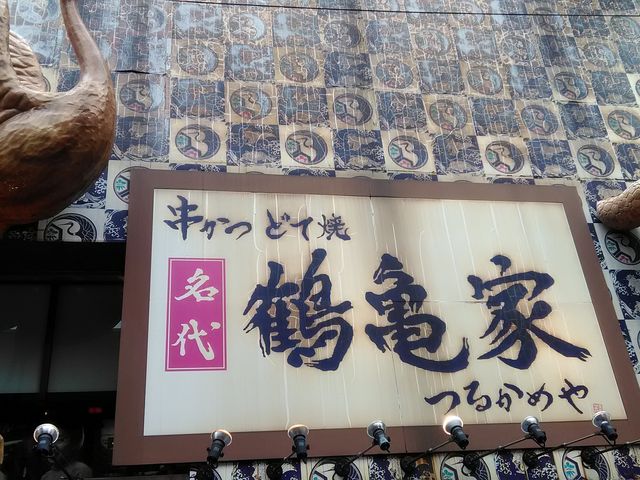 串かつ どて焼
名代
鶴亀家
つるかめや